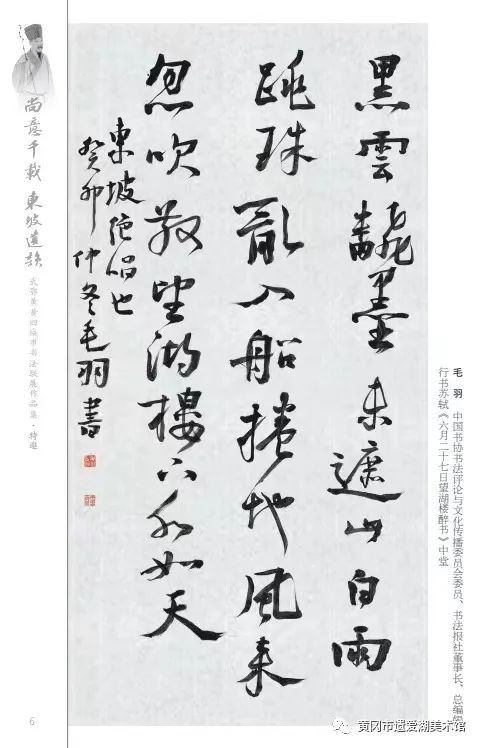 黑雲飜墨未遮山白雨
跳珠亂入船捲地風來
忽吹散望湖樓下水如天
東坡絕唱也
癸卯仲冬毛羽書
毛 羽 中国书协书法评论与文化传播委员会委员、书法报社董事长、总编辑
行书苏轼《六月二十七日望湖楼醉书》中堂
尚意千載 東坡遺韵
武鄂黄黄四城市书法联展作品集·特邀
6
黄冈市遗爱湖美术馆